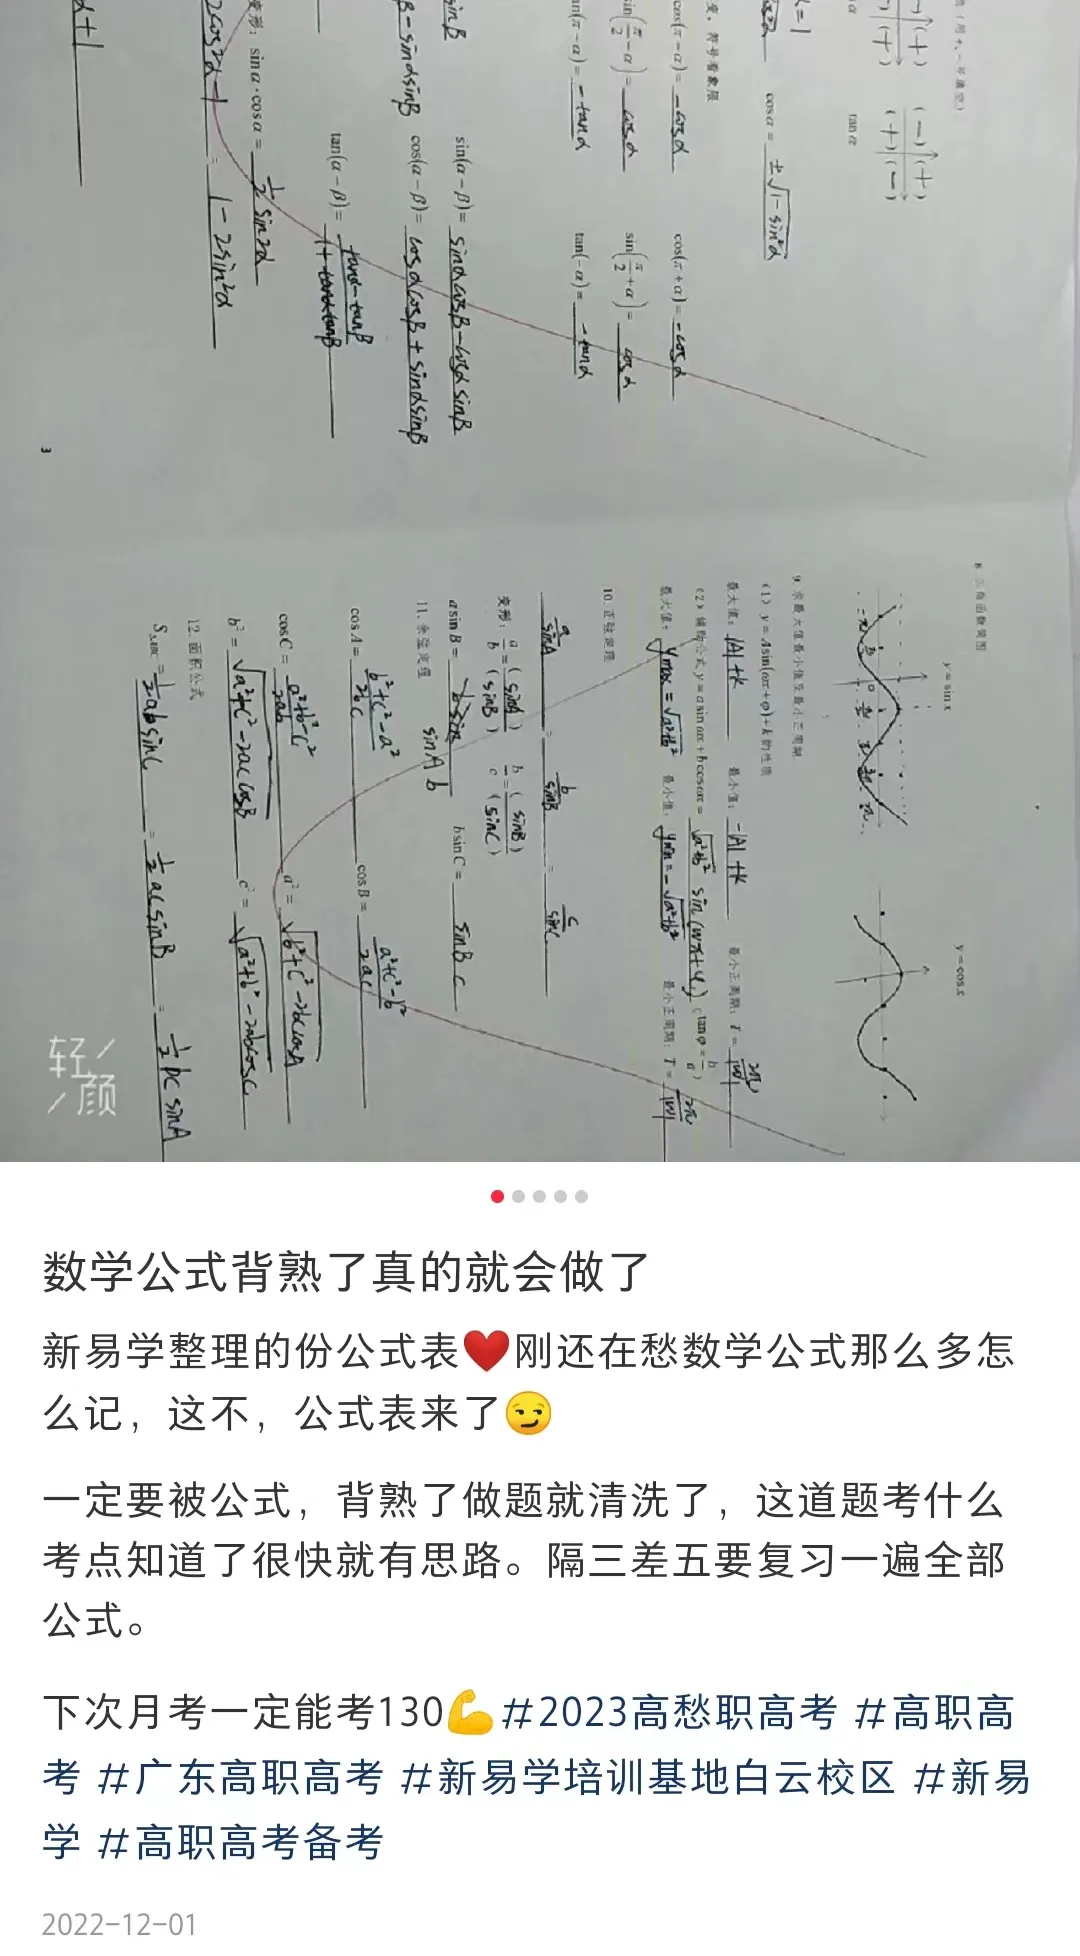 性（用+、-号填空）
sinα
cosα
tanα
cosα = ±√(1-sin²α)
变，符号看象限
cos(π-α) = -cosα
cos(π+α) = -cosα
sin(π/2-α) = cosα
sin(π/2+α) = cosα
tan(π-α) = -tanα
tan(-α) = -tanα
sin(α-β) = sinαcosβ-cosαsinβ
cos(α-β) = cosαcosβ+sinαsinβ
tan(α-β) = (tanα-tanβ)/(1+tanαtanβ)
变形：sinα·cosα = 1/2 sin2α
2cos²α-1 = 1-2sin²α
3
8 三角函数简图
y=sin x
y=cos x
9. 求最大值最小值及最小正周期
（1）y=Asin(ωx+φ)+k的性质
最大值：|A|+k 最小值：-|A|+k 最小正周期：T=2π/|w|
（2）辅助公式y=a sin ωx+b cos ωx=√(a²+b²) sin(wx+φ)（tanφ=b/a）
最大值：ymax=√(a²+b²) 最小值：ymin=-√(a²+b²) 最小正周期：T=2π/|w|
10. 正弦定理
a/sinA = b/sinB = c/sinC
变形：a/b=(sinA)/(sinB) b/c=(sinB)/(sinC)
a sin B= b sin C= sinB c
sinA b
11. 余弦定理
cos A=(b²+c²-a²)/2bc cos B=(a²+c²-b²)/2ac
cos C=(a²+b²-c²)/2ab a²=√(b²+c²-2bccosA)
b²=√(a²+c²-2accosB) c²=√(a²+b²-2abcosC)
12. 面积公式
S△ABC=1/2absinC = 1/2acsinB = 1/2bcsinA
轻颜
数学公式背熟了真的就会做了
新易学整理的份公式表❤️刚还在愁数学公式那么多怎
么记，这不，公式表来了😏
一定要被公式，背熟了做题就清洗了，这道题考什么
考点知道了很快就有思路。隔三差五要复习一遍全部
公式。
下次月考一定能考130💪#2023高愁职高考 #高职高
考 #广东高职高考 #新易学培训基地白云校区 #新易
学 #高职高考备考
2022-12-01